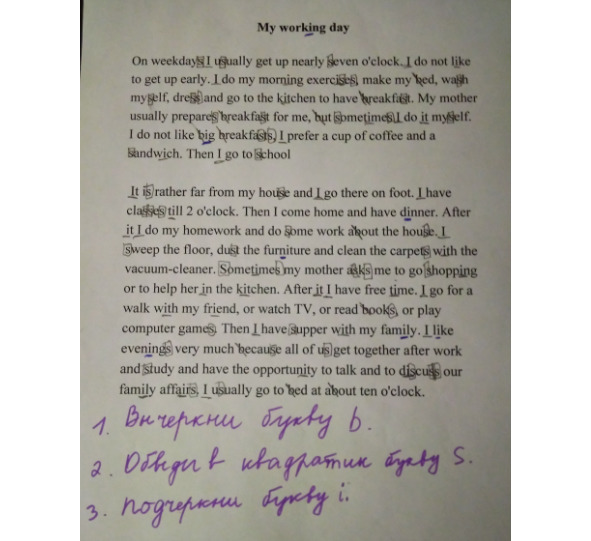 My working day
On weekdays I usually get up nearly seven o'clock. I do not like
to get up early. I do my morning exercises, make my bed, wash
myself, dress and go to the kitchen to have breakfast. My mother
usually prepares breakfast for me, but sometimes I do it myself.
I do not like big breakfasts, I prefer a cup of coffee and a
sandwich. Then I go to school
It is rather far from my house and I go there on foot. I have
classes till 2 o'clock. Then I come home and have dinner. After
it I do my homework and do some work about the house. I
sweep the floor, dust the furniture and clean the carpets with the
vacuum-cleaner. Sometimes my mother asks me to go shopping
or to help her in the kitchen. After it I have free time. I go for a
walk with my friend, or watch TV, or read books, or play
computer games. Then I have supper with my family. I like
evenings very much because all of us get together after work
and study and have the opportunity to talk and to discuss our
family affairs, I usually go to bed at about ten o'clock.
1. Вычеркни букву b.
2. Обведи в квадратик букву S.
3. Подчеркни букву i.